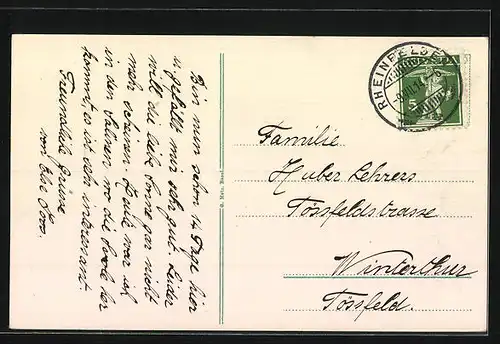 Bin nun schon 14 Tage hier
u. gefällt mir sehr gut. Leider
will die liebe Sonne gar nicht
mehr scheinen. Heute war ich
in den Salinen, wo die Soole her
kommt, es ist sehr interessant
Freundliche Grüsse
von Else
RHEINFELDEN
5
Familie
Huber Lehrers
Tössfeldstrasse
Winterthur
Tössfeld.